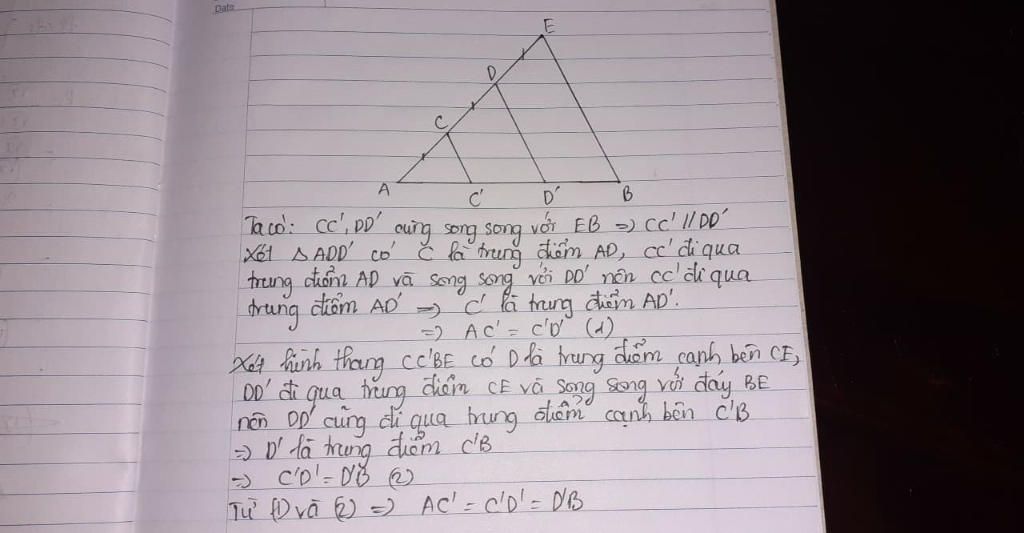 Date
E
D
C
A C' D' B
Ta có: CC', DD' cùng song song với EB => CC' // DD'
Xét △ ADD' có C là trung điểm AD, CC' đi qua
trung điểm AD và song song với DD' nên CC' đi qua
trung điểm AD' => C' là trung điểm AD'.
=> AC' = C'D' (1)
Xét hình thang CC'BE có D là trung điểm cạnh bên CE,
DD' đi qua trung điểm CE và song song với đáy BE
nên DD' cũng đi qua trung điểm cạnh bên C'B
=> D' là trung điểm C'B
=> C'D' = D'B (2)
Từ (1) và (2) => AC' = C'D' = D'B